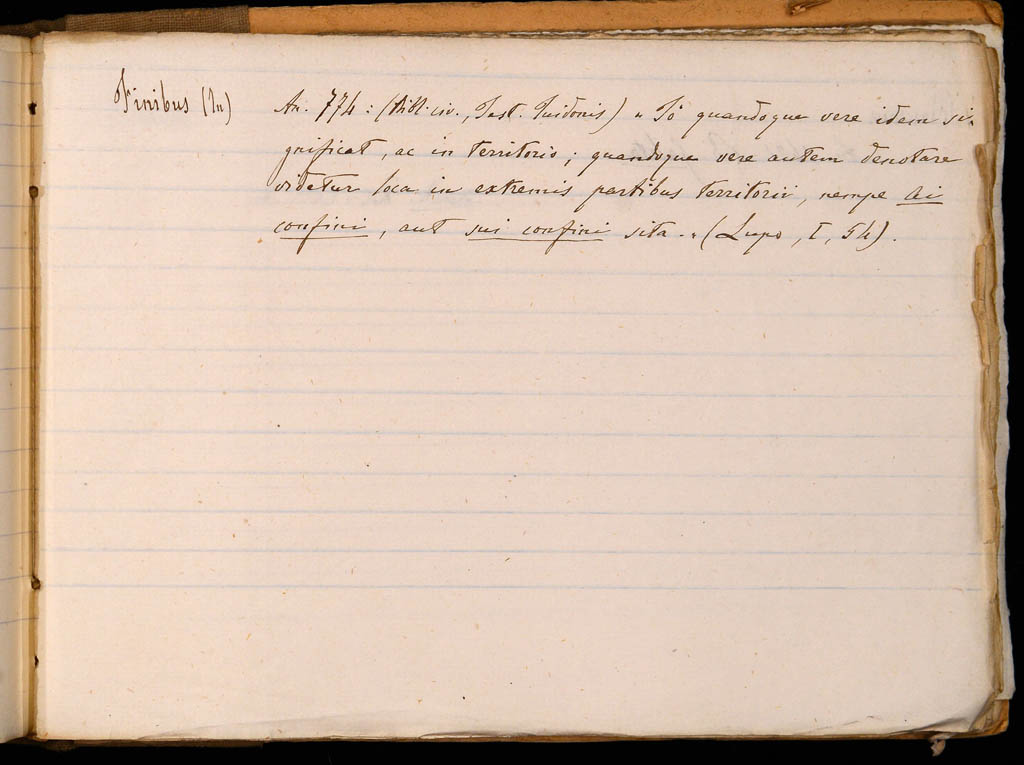 Finibus (In) An. 774: (Bibl. civ., Test. Tuidonis) " Id quandoque vere idem si-
gnificat, ac in territorio; quandoque vere autem denotare
videtur loca in extremis partibus territorii, nempe ai
confini, aut sui confini sita." (Lupo, I, 54).